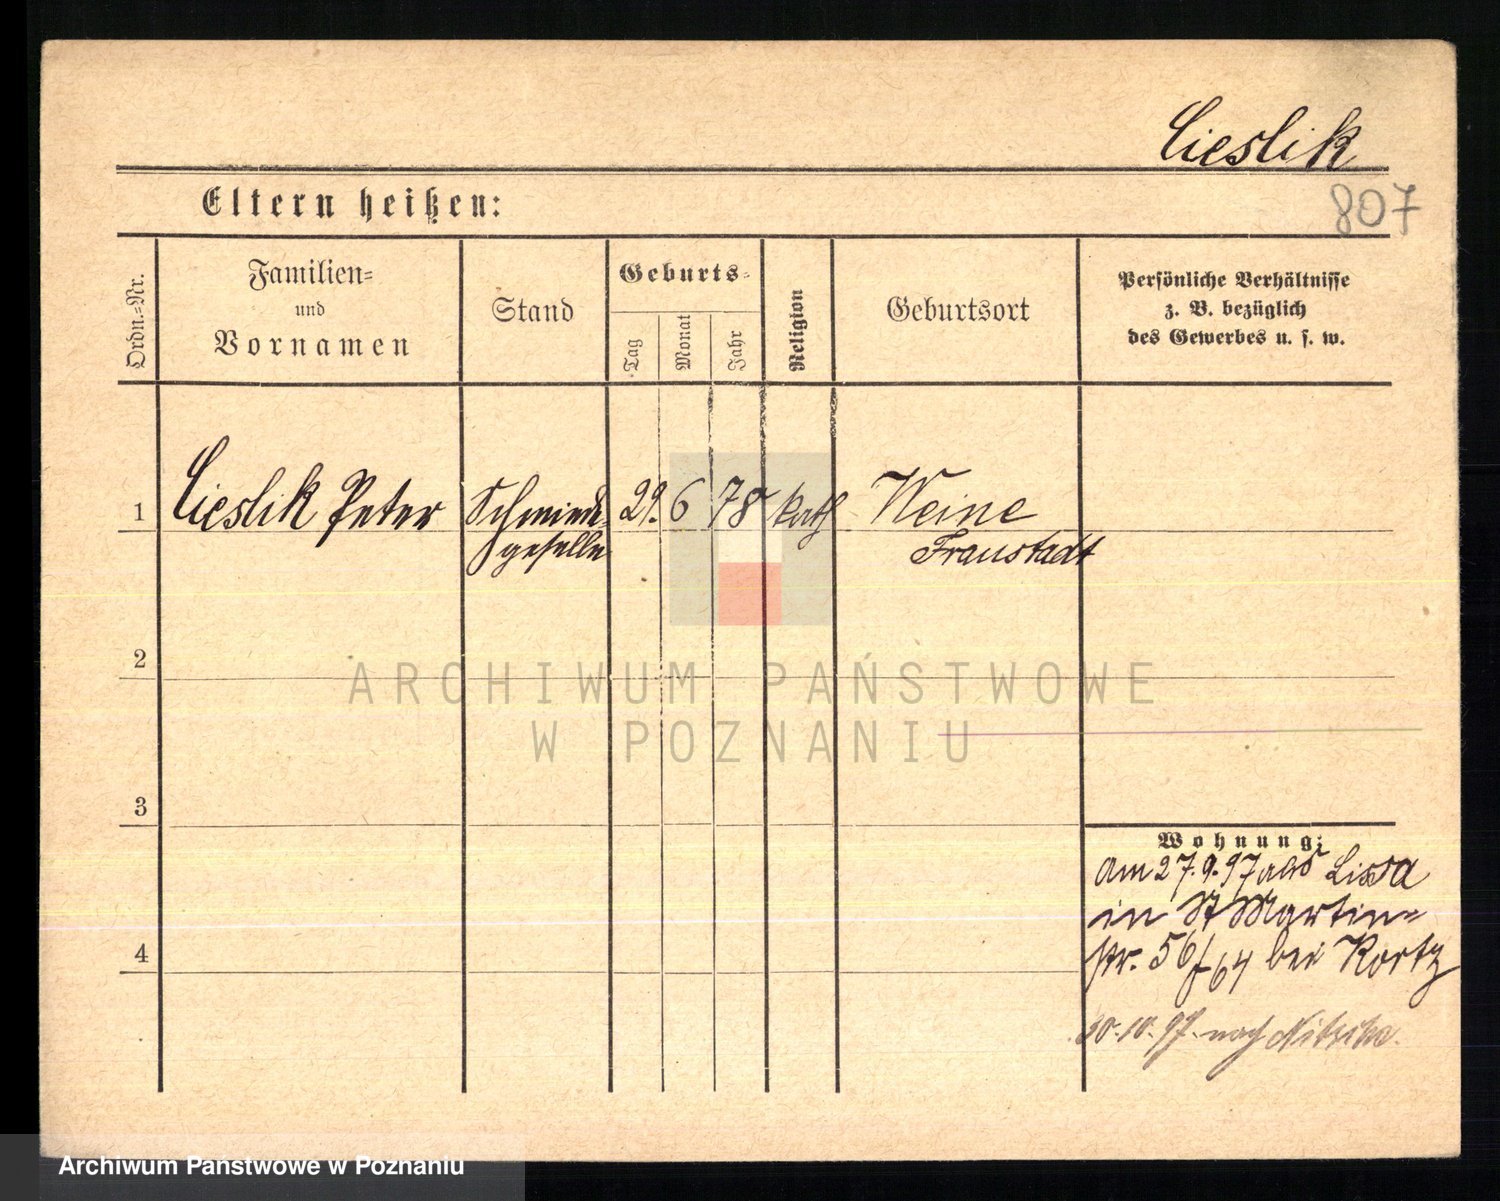 Cieslik
Eltern heißen:
807
Ordn.=Nr.
Familien=
und
Vornamen
Stand
Geburts=
Tag
Monat
Jahr
Religion
Geburtsort
Persönliche Verhältnisse
z. B. bezüglich
des Gewerbes u. s. w.
1
Cieslik Peter
Schmiede-
geselle
29.
6
78
kath
Weine
Fraustadt
2
ARCHIWUM PAŃSTWOWE
W POZNANIU
3
Wohnung:
am 27.9.97 aus Lissa
in St Martin=
str. 56/64 bei Kortz
4
30.10.97. nach
Archiwum Państwowe w Poznaniu